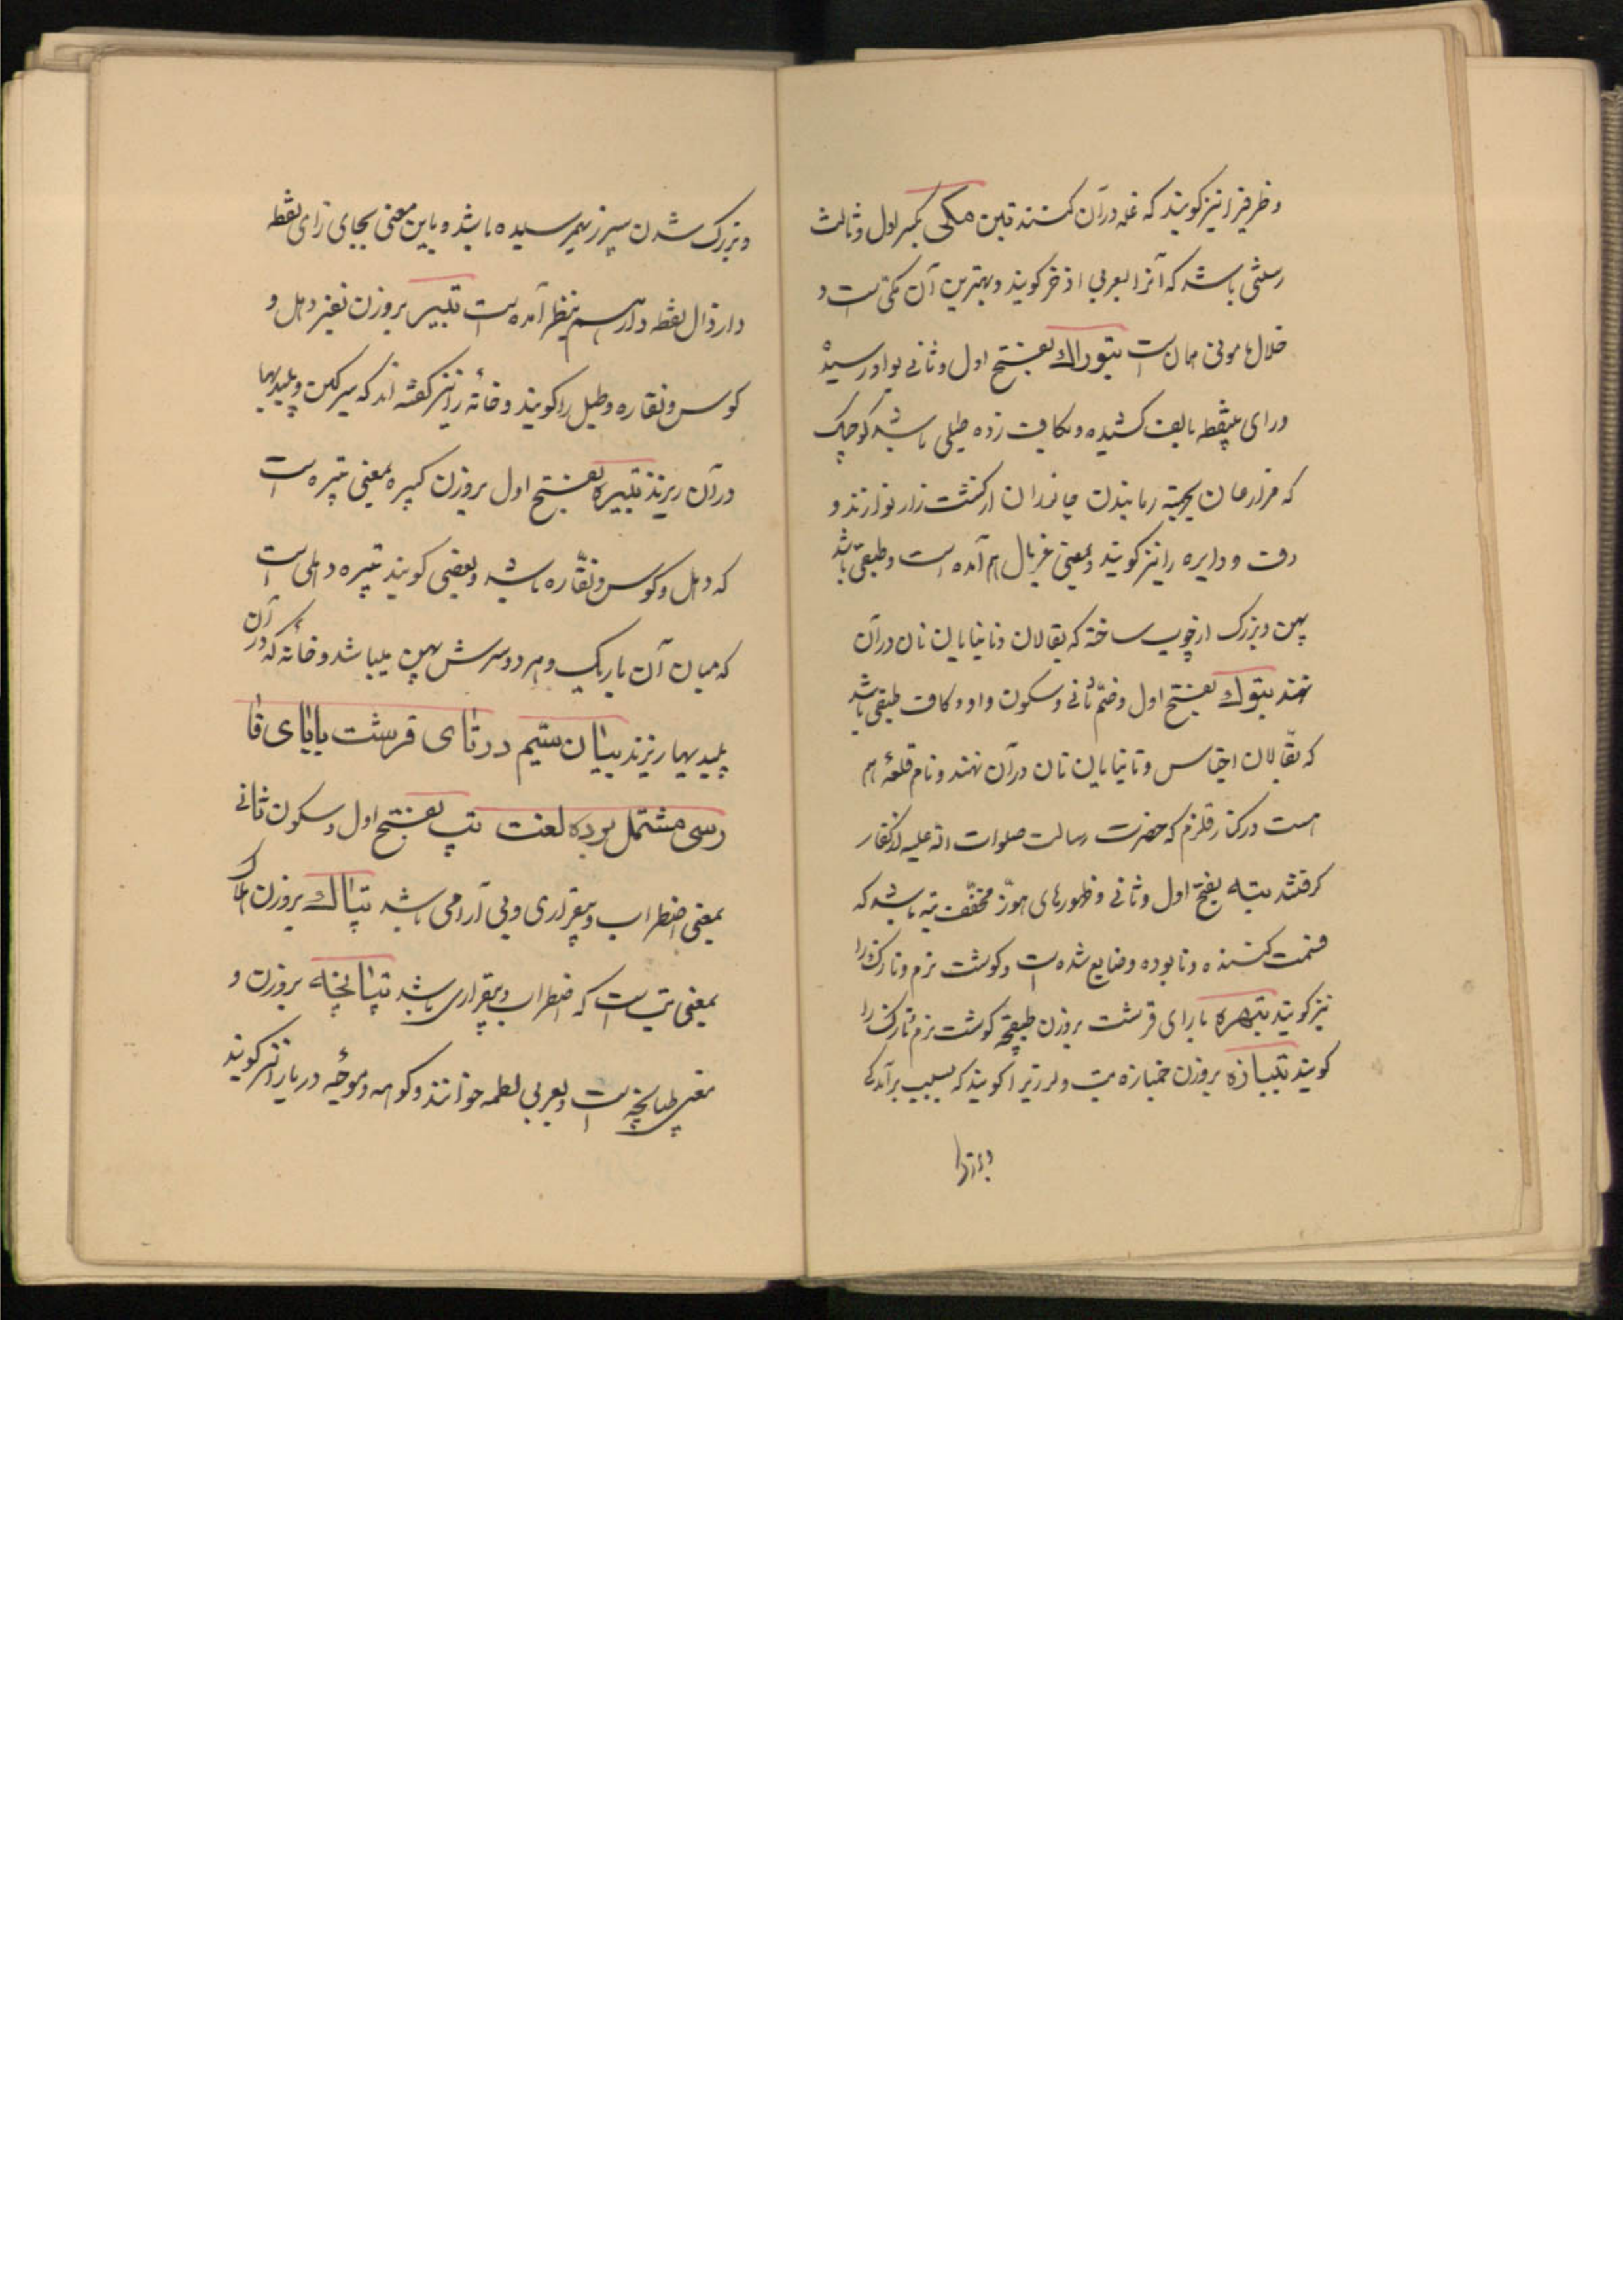 و ظرفیرا نیز کویند که غله در آن کنند تبن مکی بکسر اول و ثالث
رستنی باشد که آنرا بعربی اذخر کویند و بهترین آن مکی است و
خلال مامونی همان است تبوراک بفتح اول و ثانی بواو رسیده
و رای بینقطه بالف کشیده و بکاف زده طبلی باشد کوچک
که مزارعان بجهته رمانیدن جانوران از کشت زار نوازند و
دف و دایره را نیز کویند و بمعنی غربال هم آمده است و طبقی باشد
پهن و بزرک از چوب ساخته که بقالان و نانبایان نان در آن
نهند تبوک بفتح اول و ضم ثانی و سکون واو و کاف طبقی باشد
که بقالان اجناس و نانبایان نان در آن نهند و نام قلعهٔ هم
هست در کنار قلزم که حضرت رسالت صلوات الله علیه از کفار
کرفتند تبه بفتح اول و ثانی و ظهور های هوز مخفف تبه باشد که
قسمت کننده و نابوده و ضایع شده است و کوشت نرم و نازک را
نیز کویند تبهره با رای قرشت بروزن طبقچه کوشت نرم و نازک را
کویند تبیازه بروزن خمیازه تب و لرزیرا کویند که بسبب برآمدکی
و بزرک
و بزرک شدن سپرز بهم رسیده باشد و باین معنی بجای زای نقطه
دار ذال نقطه دار هم بنظر آمده است تبیر بروزن نفیر دهل و
کوس و نقاره و طبل را کویند و خانه را نیز کفته اند که سرکین و پلیدیها
در آن ریزند تبیره بفتح اول بروزن کبیره بمعنی تبیر است
که دهل و کوس و نقاره باشد و بعضی کویند تبیره دهلی است
که میان آن باریک و هر دو سرش پهن میباشد و خانه که در آن
پلیدیها ریزند بیان ستیم در تای قرشت با بای فا
رسی مشتمل بر ده لغت تپ بفتح اول و سکون ثانی
بمعنی اضطراب و بیقراری و بی آرامی باشد تپاک بروزن هلاک
بمعنی تپ است که اضطراب و بیقراری باشد تپانچه بروزن و
معنی طپانچه است و بعربی لطمه خوانند و کوهه و موجهٔ دریا را نیز کویند